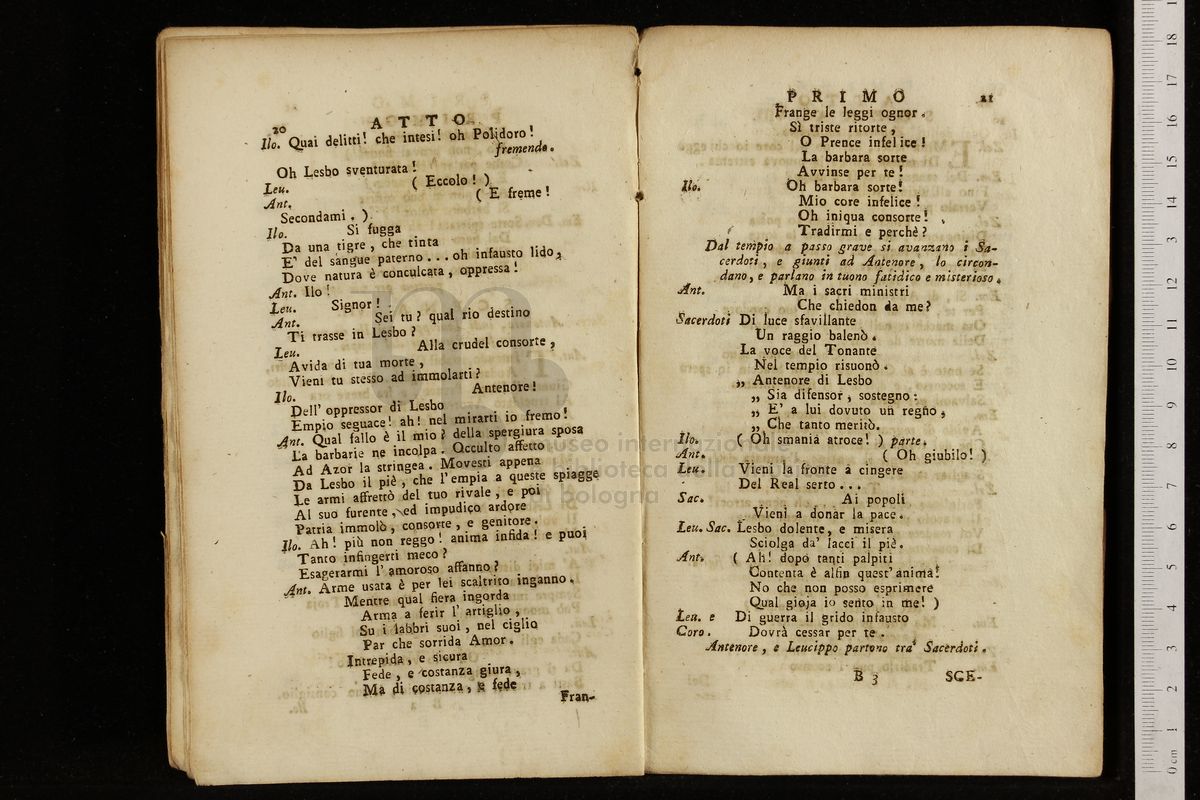 20
ATTO
Ilo. Quai delitti! che intesi! oh Polidoro!
fremendo.
Oh Lesbo sventurata!
Leu. ( Eccolo! )
Ant. ( E freme!
Secondami. )
Ilo. Si fugga
Da una tigre, che tinta
E' del sangue paterno... oh infausto lido,
Dove natura è conculcata, oppressa!
Ant. Ilo!
Leu. Signor!
Ant. Sei tu? qual rio destino
Ti trasse in Lesbo?
Leu. Alla crudel consorte,
Avida di tua morte,
Vieni tu stesso ad immolarti?
Ilo. Antenore!
Dell' oppressor di Lesbo
Empio seguace! ah! nel mirarti io fremo!
Ant. Qual fallo è il mio? della spergiura sposa
La barbarie ne incolpa. Occulto affetto
Ad Azor la stringea. Movesti appena
Da Lesbo il piè, che l'empia a queste spiagge
Le armi affrettò del tuo rivale, e poi
Al suo furente, ed impudico ardore
Patria immolò, consorte, e genitore.
Ilo. Ah! più non reggo! anima infida! e puoi
Tanto infingerti meco?
Esagerarmi l' amoroso affanno?
Ant. Arme usata è per lei scaltrito inganno.
Mentre qual fiera ingorda
Arma a ferir l' artiglio,
Su i labbri suoi, nel ciglio
Par che sorrida Amor.
Intrepida, e sicura
Fede, e costanza giura,
Ma di costanza, e fede
Fran-
PRIMO
21
Frange le leggi ognor.
Sì triste ritorte,
O Prence infelice!
La barbara sorte
Avvinse per te!
Ilo. Oh barbara sorte!
Mio core infelice!
Oh iniqua consorte!
Tradirmi e perchè?
Dal tempio a passo grave si avanzano i Sa-
cerdoti, e giunti ad Antenore, lo circon-
dano, e parlano in tuono fatidico e misterioso.
Ant. Ma i sacri ministri
Che chiedon da me?
Sacerdoti Di luce sfavillante
Un raggio balenò.
La voce del Tonante
Nel tempio risuonò.
„ Antenore di Lesbo
„ Sia difensor, sostegno:
„ E' a lui dovuto un regno,
„ Che tanto meritò.
Ilo. ( Oh smania atroce! ) parte.
Ant. ( Oh giubilo! )
Leu. Vieni la fronte a cingere
Del Real serto...
Sac. Ai popoli
Vieni a donar la pace.
Leu. Sac. Lesbo dolente, e misera
Sciolga da' lacci il piè.
Ant. ( Ah! dopo tanti palpiti
Contenta è alfin quest' anima!
No che non posso esprimere
Qual gioja io sento in me! )
Leu. e Di guerra il grido infausto
Coro. Dovrà cessar per te.
Antenore, e Leucippo partono tra' Sacerdoti.
B 3
SCE-
museo internazionale
biblioteca della
di bologna